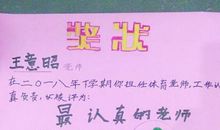 奖状
王意昭 老师
在二〇一八年下学期你担任体育老师,工作认
真负责,被评为:
最认真的老师